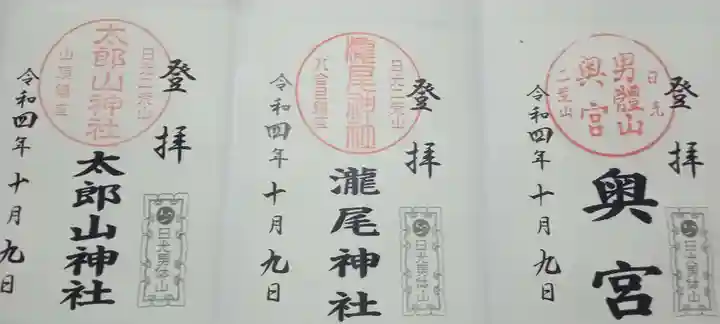 奥宮
登拝
日光
男體山
奥宮
二荒山
令和四年十月九日
日光男体山
瀧尾神社
登拝
日光二荒山
瀧尾神社
八合目鎮座
令和四年十月九日
日光男体山
太郎山神社
登拝
日光二荒山
太郎山神社
山頂鎮座
令和四年十月九日
日光男体山